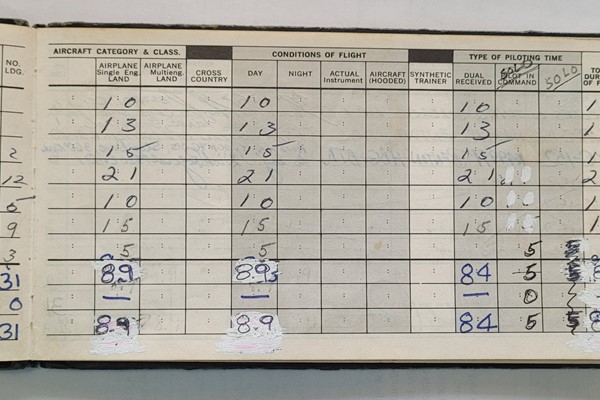 NO. LDG. AIRCRAFT CATEGORY & CLASS. CONDITIONS OF FLIGHT TYPE OF PILOTING TIME
AIRPLANE Single Eng. LAND AIRPLANE Multieng. LAND CROSS COUNTRY DAY NIGHT ACTUAL Instrument AIRCRAFT (HOODED) SYNTHETIC TRAINER DUAL RECEIVED PILOT IN COMMAND SOLO SOLO TO
1 0 1 0 1 0 1
1 3 1 3 1 3 1
2 1 5 1 5 1 5 1
12 2 1 2 1 2 1 2
5 1 0 1 0 1 0 1
9 1 5 1 5 1 5 1
3 5 5 5
31 8 9 8 9 8 4 5 5 8
0 — — — 0
31 8 9 8 9 8 4 5 5 8